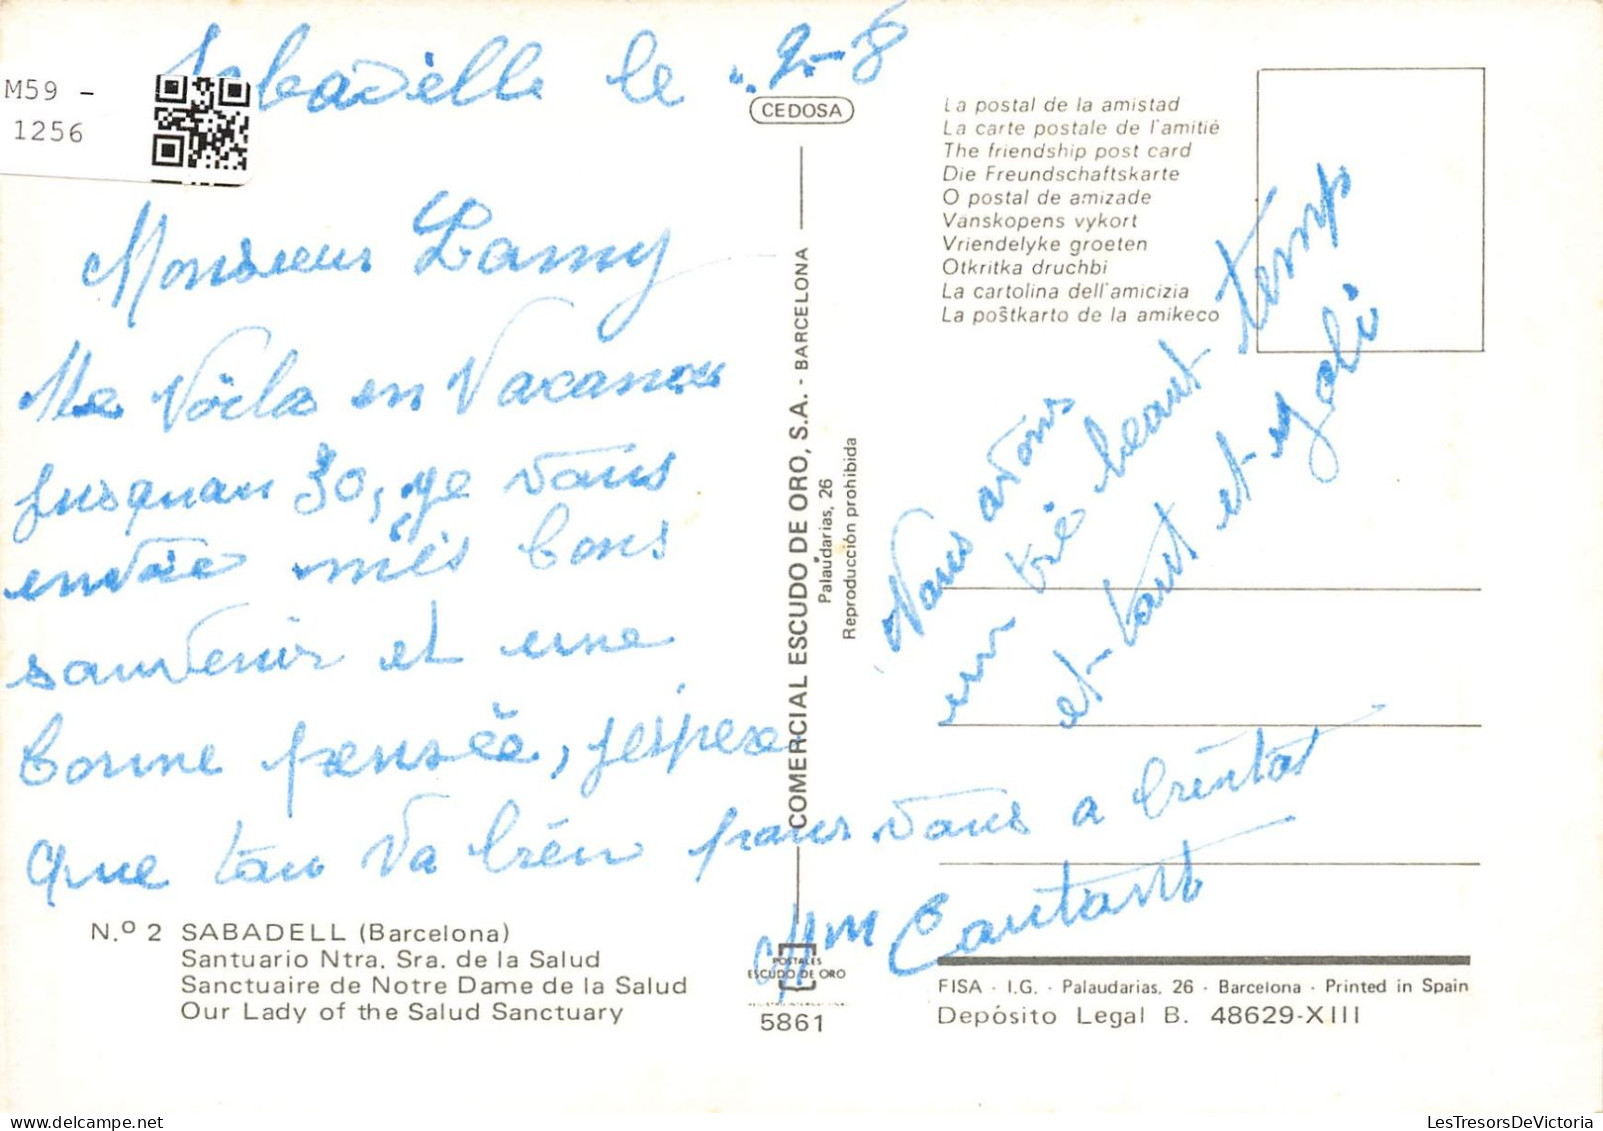 Sabadèlle le 2-8
M59 -
1256
Monsieur Lamy
Me Voila en Vacances
jusquau 30, ge vous
envoie mes bons
souvenir et une
bonne pensèe, jespere
que tou va bièn pour vous a bièntot
Mm Coutant
CEDOSA
COMERCIAL ESCUDO DE ORO, S.A. - BARCELONA
Palaudarias, 26
Reproducción prohibida
La postal de la amistad
La carte postale de l'amitié
The friendship post card
Die Freundschaftskarte
O postal de amizade
Vanskopens vykort
Vriendelyke groeten
Otkritka druchbi
La cartolina dell'amicizia
La poŝtkarto de la amikeco
Nous avons
un trè beaut temps
et tout et joli
N.º 2 SABADELL (Barcelona)
Santuario Ntra. Sra. de la Salud
Sanctuaire de Notre Dame de la Salud
Our Lady of the Salud Sanctuary
POSTALES
ESCUDO DE ORO
REGISTRO INTERNACIONAL
5861
FISA - I.G. - Palaudarias, 26 - Barcelona - Printed in Spain
Depósito Legal B. 48629-XIII
LesTresorsDeVictoria